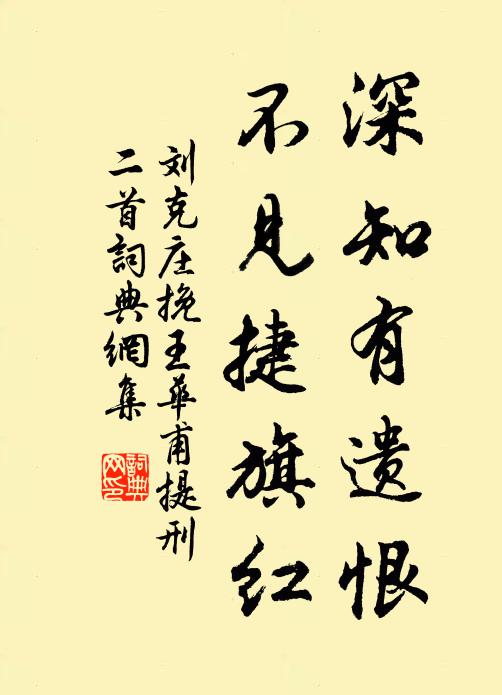 深知有遗恨
不见捷旗红
刘克庄挽王华甫提刑
二首詞典網集
詞典
网印